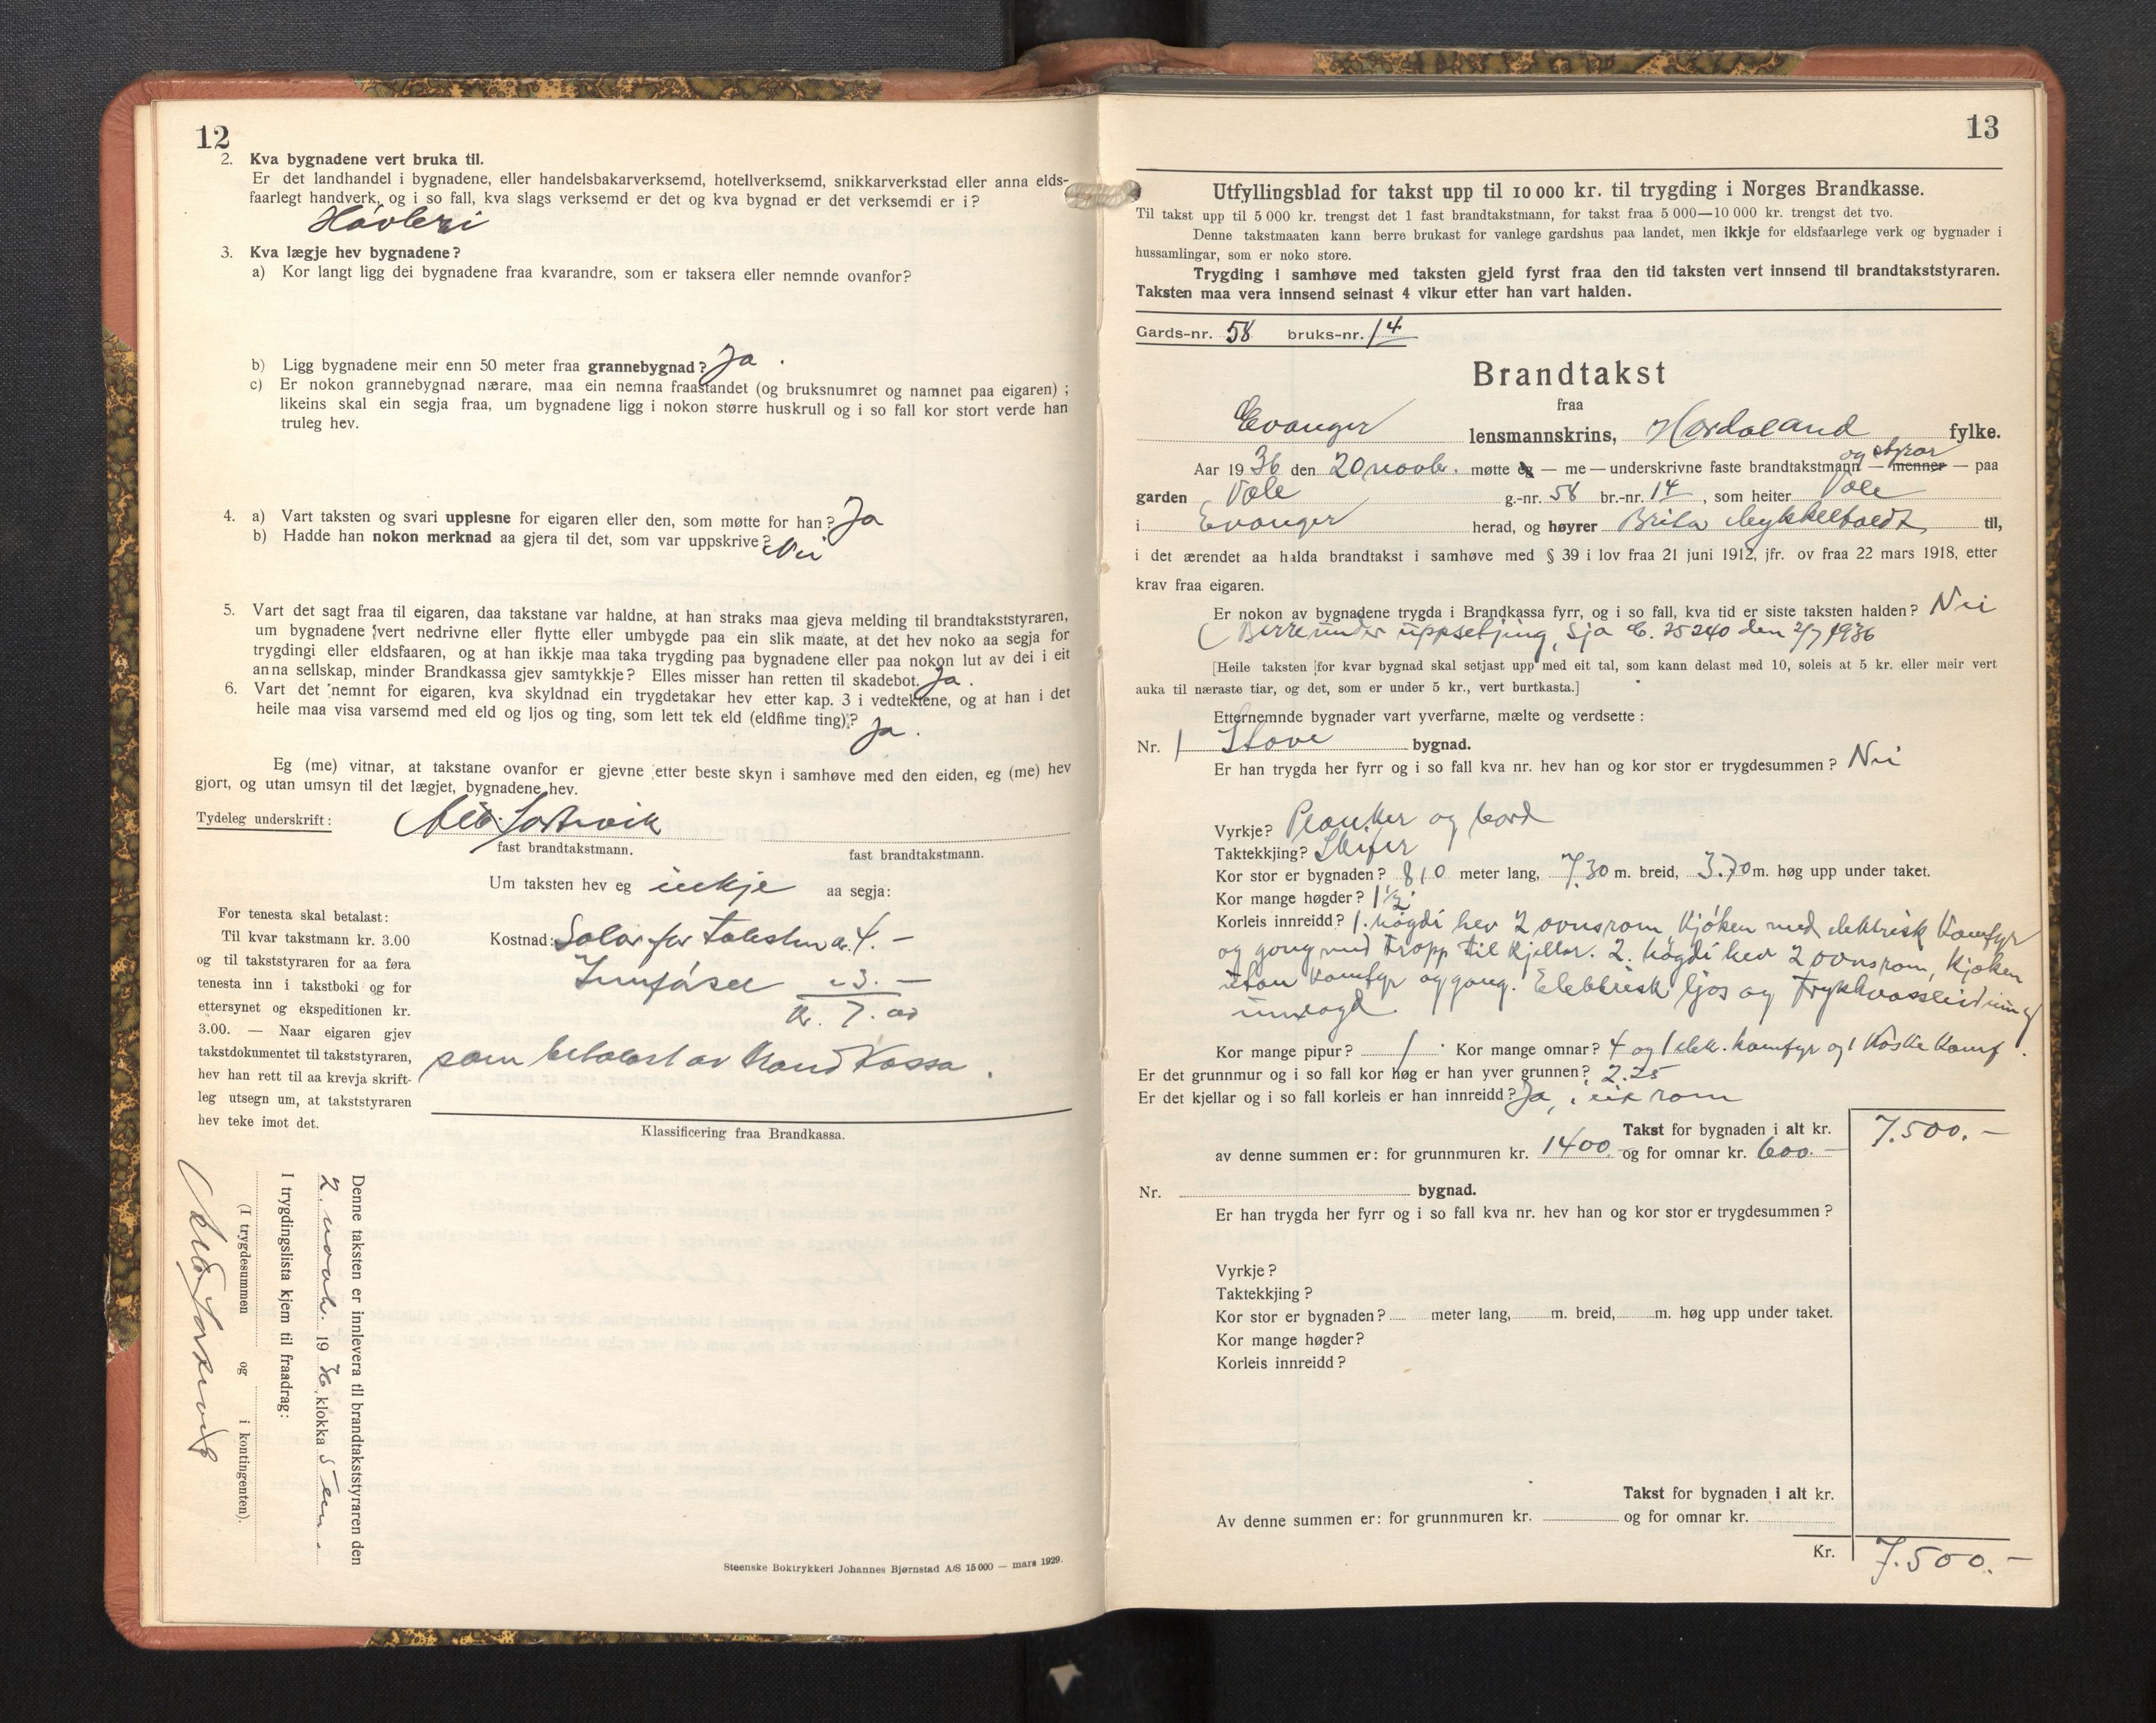 12
2. Kva bygnadene vert bruka til.
Er det landhandel i bygnadene, eller handelsbakarverksemd, hotellverksemd, snikkarverkstad eller anna elds-
faarlegt handverk, og i so fall, kva slags verksemd er det og kva bygnad er det verksemdi er i?
Høvleri
3. Kva lægje hev bygnadene?
a) Kor langt ligg dei bygnadene fraa kvarandre, som er taksera eller nemnde ovanfor?
b) Ligg bygnadene meir enn 50 meter fraa grannebygnad? Ja.
c) Er nokon grannebygnad nærare, maa ein nemna fraastandet (og bruksnumret og namnet paa eigaren);
likeins skal ein segja fraa, um bygnadene ligg i nokon større huskrull og i so fall kor stort verde han
truleg hev.
4. a) Vart taksten og svari upplesne for eigaren eller den, som møtte for han? Ja
b) Hadde han nokon merknad aa gjera til det, som var uppskrive? Nei
5. Vart det sagt fraa til eigaren, daa takstane var haldne, at han straks maa gjeva melding til brandtakststyraren,
um bygnadene vert nedrivne eller flytte eller umbygde paa ein slik maate, at det hev noko aa segja for
trygdingi eller eldsfaaren, og at han ikkje maa taka trygding paa bygnadene eller paa nokon lut av dei i eit
anna sellskap, minder Brandkassa gjev samtykkje? Elles misser han retten til skadebot. Ja.
6. Vart det nemnt for eigaren, kva skyldnad ein trygdetakar hev etter kap. 3 i vedtektene, og at han i det
heile maa visa varsemd med eld og ljos og ting, som lett tek eld (eldfime ting)? Ja.
Eg (me) vitnar, at takstane ovanfor er gjevne etter beste skyn i samhøve med den eiden, eg (me) hev
gjort, og utan umsyn til det lægjet, bygnadene hev.
Tydeleg underskrift:
fast brandtakstmann. fast brandtakstmann.
Um taksten hev eg inkje aa segja:
For tenesta skal betalast:
Til kvar takstmann kr. 3.00
og til takststyraren for aa føra
tenesta inn i takstboki og for
ettersynet og ekspeditionen kr.
3.00. — Naar eigaren gjev
takstdokumentet til takststyraren,
hev han rett til aa krevja skrift-
leg utsegn um, at takststyraren
hev teke imot det.
Kostnad: Salar for taksten kr. 4.–
Innføsel " 3.–
kr. 7.00
som betalast av Brandkassa.
Klassificering fraa Brandkassa.
Denne taksten er innlevera til brandtakststyraren den
2 novbr. 1936 klokka 5 em.
I trygdingslista kjem til fraadrag:
(I trygdesummen og i kontingenten).
Steenske Boktrykkeri Johannes Bjørnstad A/S 15000 — mars 1929.
13
Utfyllingsblad for takst upp til 10 000 kr. til trygding i Norges Brandkasse.
Til takst upp til 5 000 kr. trengst det 1 fast brandtakstmann, for takst fraa 5 000—10 000 kr. trengst det tvo.
Denne takstmaaten kann berre brukast for vanlege gardshus paa landet, men ikkje for eldsfaarlege verk og bygnader i
hussamlingar, som er noko store.
Trygding i samhøve med taksten gjeld fyrst fraa den tid taksten vert innsend til brandtakststyraren.
Taksten maa vera innsend seinast 4 vikur etter han vart halden.
Gards-nr. 58 bruks-nr. 14
Brandtakst
fraa
Evanger lensmannskrins, Hordaland fylke.
Aar 1936 den 20 novbr. møtte eg — me — underskrivne faste brandtakstmann og styrar — menner — paa
garden Væle g.-nr. 58 br.-nr. 14, som heiter Væle
i Evanger herad, og høyrer Brita Mykkeltvedt til,
i det ærendet aa halda brandtakst i samhøve med § 39 i lov fraa 21 juni 1912, jfr. ov fraa 22 mars 1918, etter
krav fraa eigaren.
Er nokon av bygnadene trygda i Brandkassa fyrr, og i so fall, kva tid er siste taksten halden? Nei
(Berre under uppsetjing, sjå C. 75240 den 2/7 1936
[Heile taksten for kvar bygnad skal setjast upp med eit tal, som kann delast med 10, soleis at 5 kr. eller meir vert
auka til næraste tiar, og det, som er under 5 kr., vert burtkasta.]
Etternemnde bygnader vart yverfarne, mælte og verdsette:
Nr. 1 Stove bygnad.
Er han trygda her fyrr og i so fall kva nr. hev han og kor stor er trygdesummen? Nei
Vyrkje? Planker og bord
Taktekkjing? Skifer
Kor stor er bygnaden? 8,10 meter lang, 7,30 m. breid, 3.70 m. høg upp under taket.
Kor mange høgder? 1½
Korleis innreidd? 1. høgdi hev 2 ovnsrom, kjøken med elektrisk komfyr
og gong med tropp til kjellar. 2. høgdi hev 2 ovnsrom, kjøken
utan komfyr og gong. Elektrisk ljos og trykkvassleidning
innlagd.
Kor mange pipur? 1 Kor mange omnar? 4 og 1 elek. komfyr og 1 koske komf.
Er det grunnmur og i so fall kor høg er han yver grunnen? 2.25
Er det kjellar og i so fall korleis er han innreidd? Ja, i eit rom
Takst for bygnaden i alt kr. 7.500.–
av denne summen er: for grunnmuren kr. 1400.– og for omnar kr. 600.–
Nr. bygnad.
Er han trygda her fyrr og i so fall kva nr. hev han og kor stor er trygdesummen?
Vyrkje?
Taktekkjing?
Kor stor er bygnaden? meter lang, m. breid, m. høg upp under taket.
Kor mange høgder?
Korleis innreidd?
Takst for bygnaden i alt kr.
Av denne summen er: for grunnmuren kr. og for omnar kr.
Kr. 7.500.–